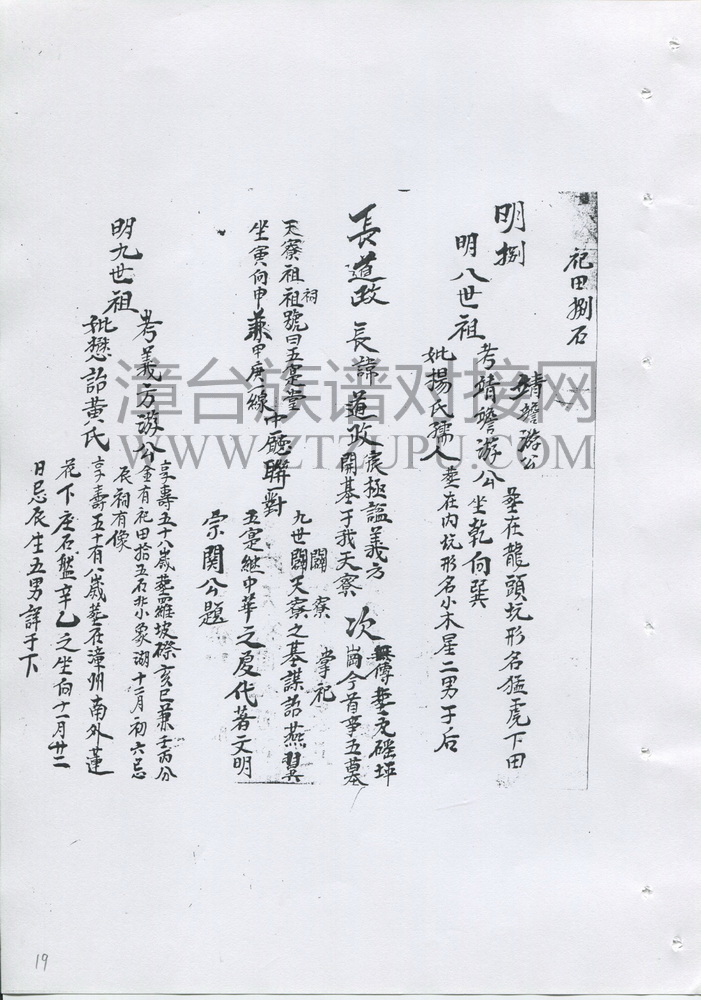 祀田捌石
明捌
靖蟾游公
葬在龍頭坑形名猛虎下田
明八世祖
考靖蟾游公坐乾向巽
妣揚氏孺人葬在內坑形名小木星二男于后
長道政 長諱道政宸極諡義方
開基于我天寮
次
無傳葬
崗今首事五墓
天寮祖祠號曰五寔堂
坐寅向申兼甲庚一線
中廳聯一對
九世闢天寮之基謀詒燕翼
闢 寮 掌祀
五寔繼中華之夏代著文明
宗関公題
明九世祖
考義方游公
享壽五十八歲葬羅坡磜亥巳兼壬丙分
金有祀田拾五石北小象湖十二月初六忌
辰祠有像
妣懋詒黃氏
享壽五十有八歲葬在漳州南外蓮
花下座石盤辛乙之坐向十一月廿二
日忌辰生五男詳于下
漳台族谱对接网
WWW.ZTZUPU.COM
19